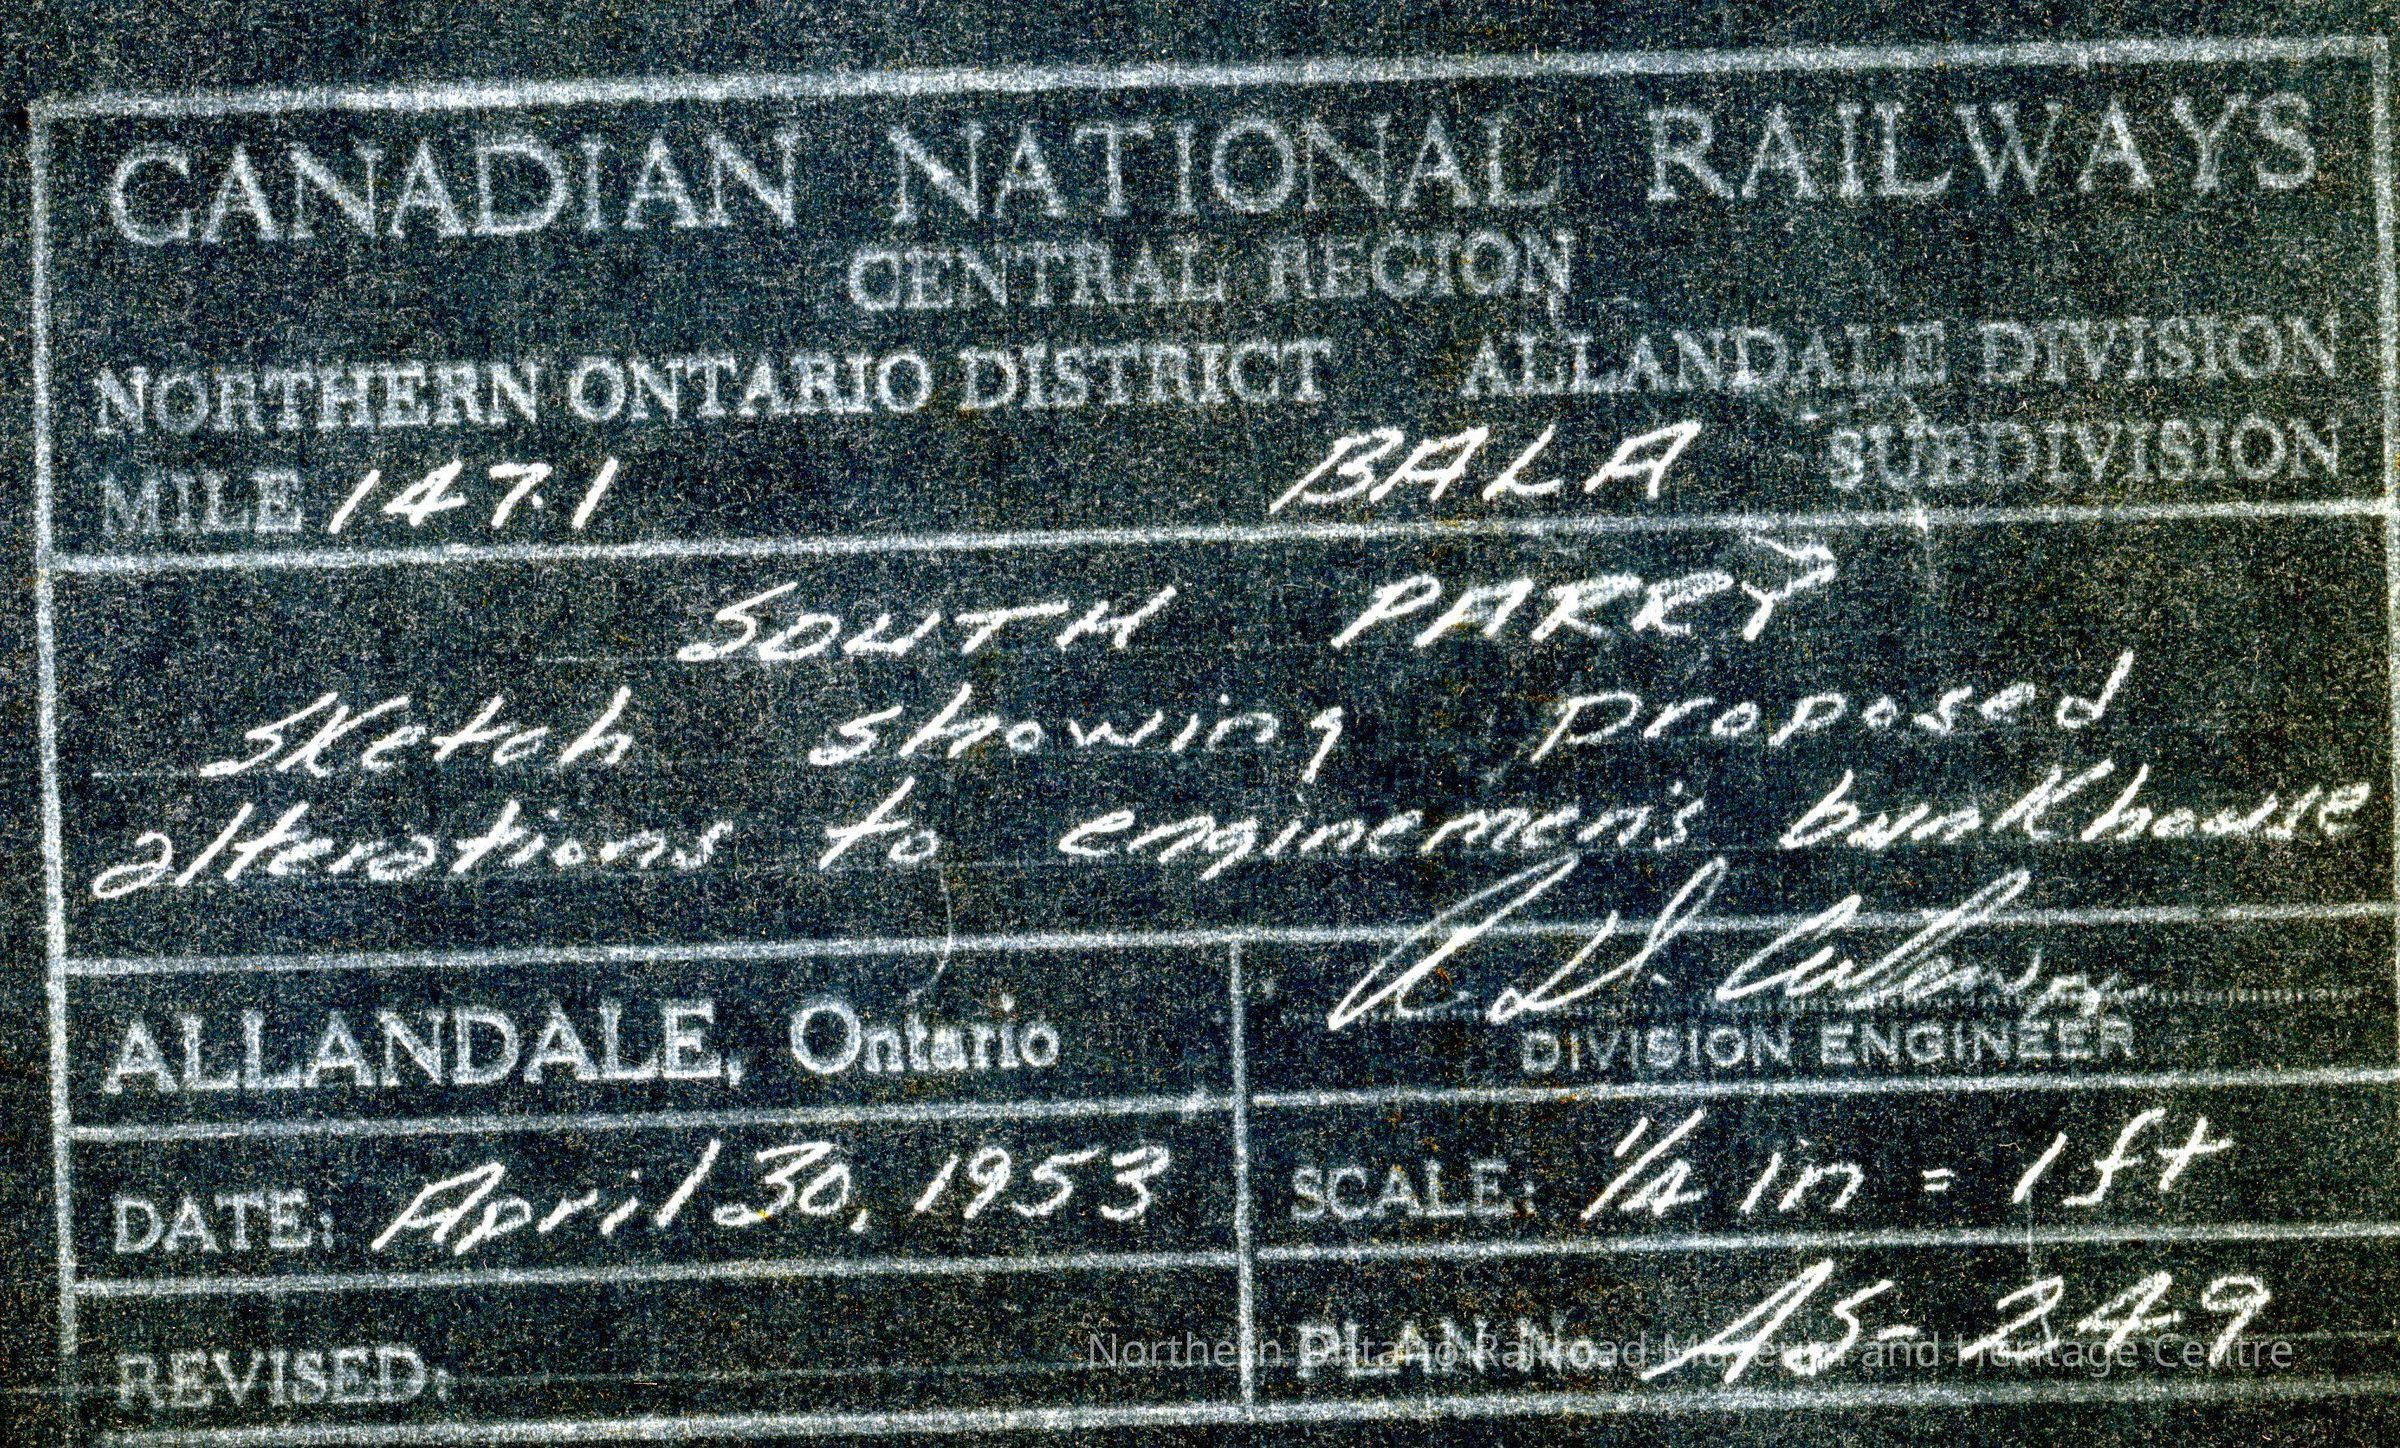 CANADIAN NATIONAL RAILWAYS
CENTRAL REGION
NORTHERN ONTARIO DISTRICT ALLANDALE DIVISION
MILE 147.1 BALA SUBDIVISION
SOUTH PARRY
Sketch showing proposed
alterations to enginemen's bunkhouse
ALLANDALE, Ontario
DIVISION ENGINEER
DATE: April 30, 1953
SCALE: 1/4 in = 1 ft
REVISED:
PLAN N 45-249
Northern Ontario Railroad Museum and Heritage Centre